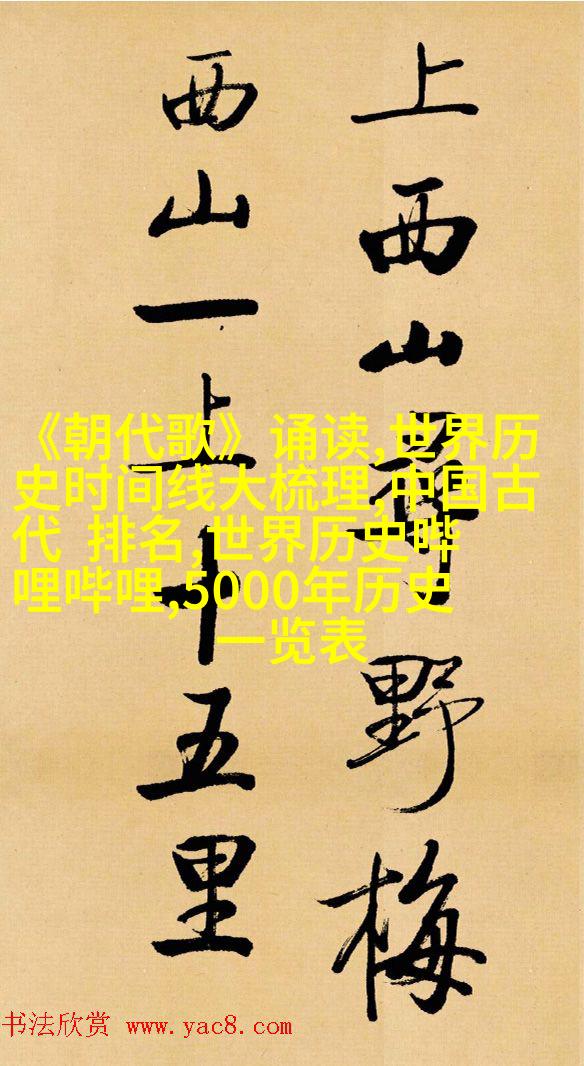 上西山尋野梅
西山一上十五里
《朝代歌》诵读,世界历
史时间线大梳理,中国古
代 排名,世界历史哔
哩哔哩,5000年历史
一览表
书法欣赏 www.yac8.com